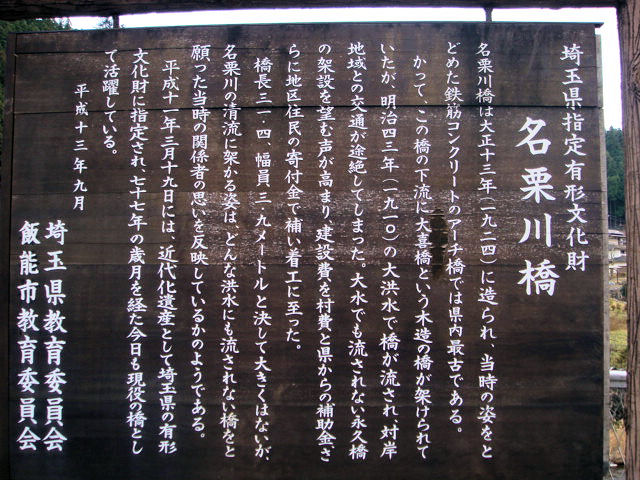 埼玉県指定有形文化財
名栗川橋
名栗川橋は大正十三年(一九二四)に造られ、当時の姿をと
どめた鉄筋コンクリートのアーチ橋では県内最古である。
かつて、この橋の下流に大喜橋という木造の橋が架けられて
いたが、明治四三年(一九一〇)の大洪水で橋が流され、対岸
地域との交通が途絶してしまった。大水でも流されない永久橋
の架設を望む声が高まり、建設費を村費と県からの補助金さ
らに地区住民の寄付金で補い着工に至った。
橋長三一・四、幅員三・九メートルと決して大きくはないが、
名栗川の清流に架かる姿は、どんな洪水にも流されない橋をと
願った当時の関係者の思いを反映しているかのようである。
平成十一年三月十九日には、近代化遺産として埼玉県の有形
文化財に指定され、七十七年の歳月を経た今日も現役の橋とし
て活躍している。
平成十三年九月
埼玉県教育委員会
飯能市教育委員会